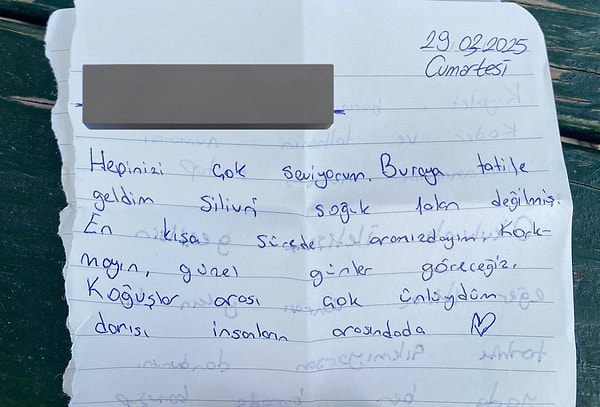 29.03.2025
Cumartesi
Hepinizi çok seviyorum. Buraya tatile
geldim Silivri soğuk falan değilmiş.
En kısa sürede aranızdayım. Kork-
mayın, güzel günler göreceğiz.
Koğuşlar arası çok ünlüydüm
darısı insanların arasındada ♡